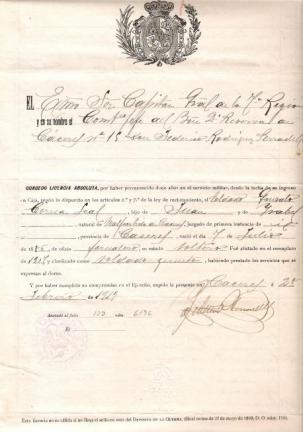 EL Excmo Sor Capitán Gral de la 7ª Región
y en su nombre el Comte Jefe del Bon 2ª Reserva de
Cáceres nº 15 Don Federico Rodríguez
CONCEDO LICENCIA ABSOLUTA, por haber permanecido doce años en el servicio militar, desde la fecha de su ingreso
en Caja, según lo dispuesto en los artículos 2.º y 7.º de la ley de reclutamiento, al Soldado Gonzalo
Correa Leal, hijo de Juan y de Isabel
natural de Malpartida de Cáceres, juzgado de primera instancia de
, provincia de Cáceres, nació el 7 de Julio
de 18 , de oficio jornalero, su estado soltero. Fué alistado en el reemplazo
de , y clasificado como soldado, habiendo prestado los servicios que se
expresan al dorso.
Y por haber cumplido su compromiso en el Ejército, expido la presente en Cáceres á
Febrero de 19
Anotado al folio 123 núm. 6196
Esta licencia no es válida si no lleva el sello en seco del Depósito de la Guerra. (Real orden de 27 de mayo de 1899, D. O. núm. 116).